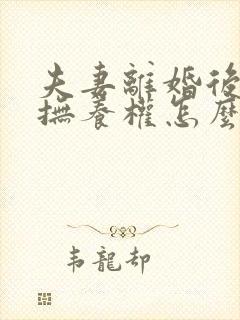 夫妻離婚後
撫養權怎麼
韦龍却